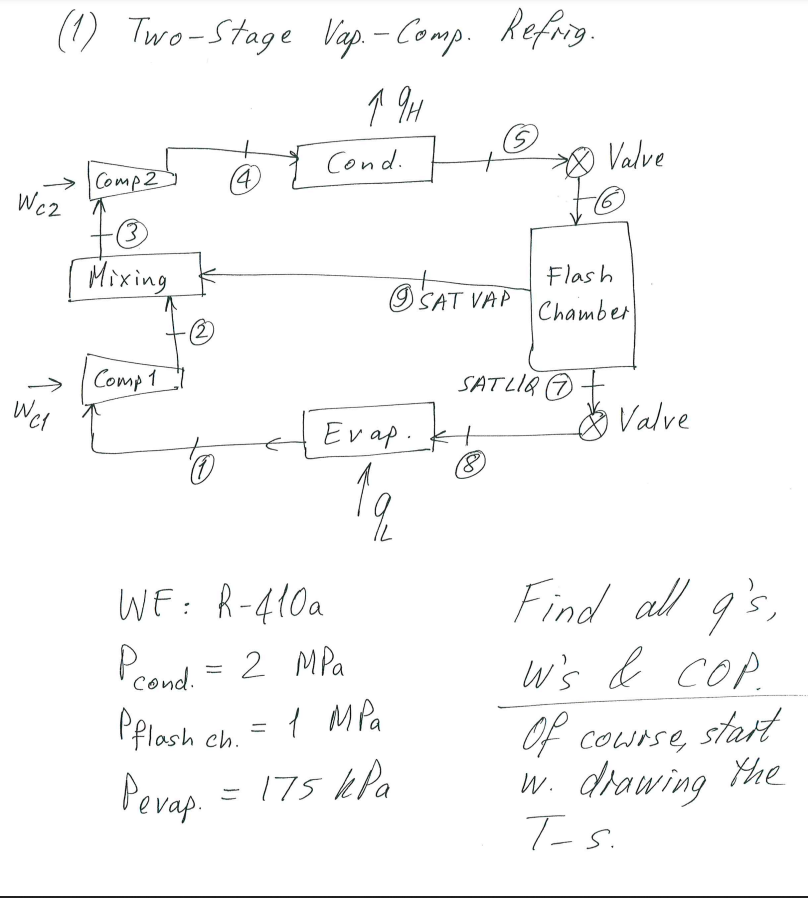 (1) Two-Stage Vap.-Comp. Refrig.
↑ qH
Cond.
④
⑤
Valve
Comp2
Wc2
⑥
③
Mixing
⑨ SAT VAP
Flash
Chamber
②
Comp 1
Wc1
SAT LIQ ⑦
Valve
Evap.
①
⑧
qL
WF: R-410a
Pcond. = 2 MPa
Pflash ch. = 1 MPa
Pevap. = 175 kPa
Find all q's,
W's & COP.
Of course, start
w. drawing the
T-s.